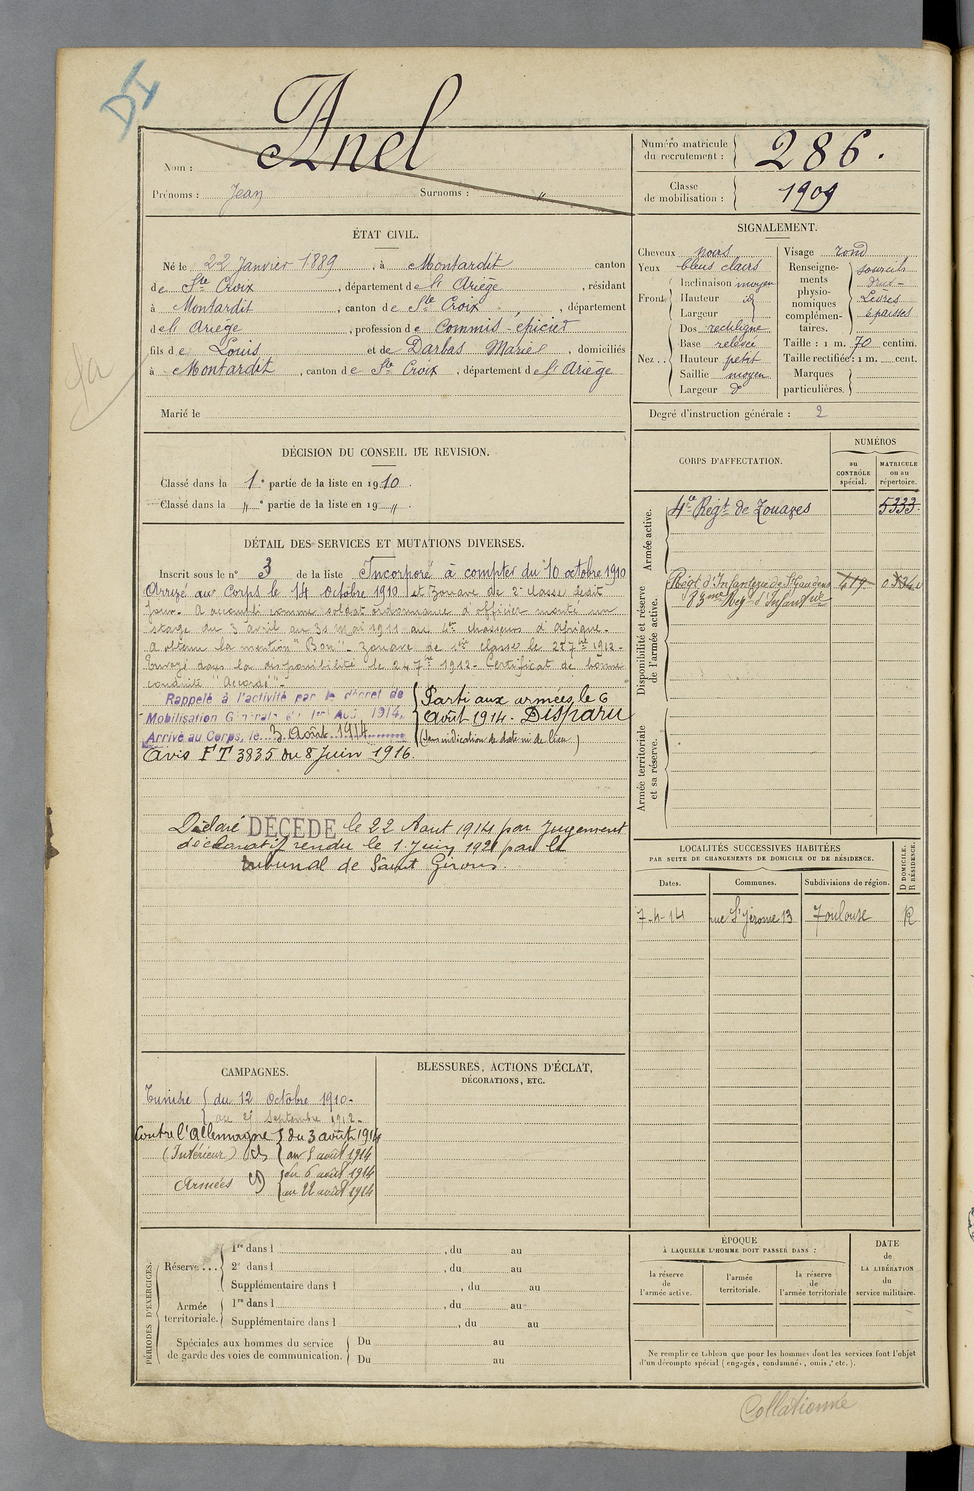 DI
Anel
Nom :
Prénoms : Jean Surnoms : "
Numéro matricule du recrutement : 286.
Classe de mobilisation : 1909
ÉTAT CIVIL.
Né le 22 Janvier 1889, à Montardit canton
de Ste Croix, département de l'Ariège, résidant
à Montardit, canton de Ste Croix, département
de l'Ariège, profession de Commis-épicier
fils de Louis et de Darbas Marie, domiciliés
à Montardit, canton de Ste Croix, département de l'Ariège
Marié le
SIGNALEMENT.
Cheveux noirs
Yeux bleus clairs
Front Inclinaison moyen
Hauteur id
Largeur
Nez.. Dos rectiligne
Base relevée
Hauteur petit
Saillie moyen
Largeur d°
Visage rond
Renseignements physionomiques complémentaires. sourcils drus - Lèvres épaisses
Taille : 1 m. 70 centim.
Taille rectifiée : 1 m. cent.
Marques particulières.
Degré d'instruction générale : 2
DÉCISION DU CONSEIL DE REVISION.
Classé dans la 1e partie de la liste en 1910.
Classé dans la " e partie de la liste en 19 ".
DÉTAIL DES SERVICES ET MUTATIONS DIVERSES.
Inscrit sous le n° 3 de la liste Incorporé à compter du 10 octobre 1910
Arrivé au Corps le 14 octobre 1910 et Zouave de 2e classe ledit
jour. A accompli comme soldat ordonnance d'officier monté un
stage du 3 avril au 31 mai 1911 au 4e chasseurs d'Afrique.
A obtenu la mention "Bon". Zouave de 1ère classe le 27 7bre 1912.
Envoyé dans la disponibilité le 24 7bre 1912. Certificat de bonne
conduite "Accordé".
Rappelé à l'activité par le décret de
Mobilisation Générale du 1er Août 1914,
Arrivé au Corps, le 3 Août 1914
Parti aux armées le 6
Août 1914. Disparu
(sans indication de date ni de lieu)
Avis FT 3835 du 8 Juin 1916.
Déclaré DÉCÉDÉ le 22 Aout 1914 par Jugement
déclaratif rendu le 1 Juin 1921 par le
tribunal de Saint Girons.
CORPS D'AFFECTATION.
NUMÉROS
au CONTRÔLE spécial.
MATRICULE ou au répertoire.
Armée active.
4e Régt de Zouaves 5333
Disponibilité et réserve de l'armée active.
Régt d'Infanterie de St Gaudens
83me Rég d'Infantrie
Armée territoriale et sa réserve.
LOCALITÉS SUCCESSIVES HABITÉES
PAR SUITE DE CHANGEMENTS DE DOMICILE OU DE RÉSIDENCE.
Dates. Communes. Subdivisions de région. D DOMICILE. R RÉSIDENCE.
7-4-14 rue St Jérome 13 Toulouse R
CAMPAGNES.
Tunisie du 12 Octobre 1910-
au 2 Septembre 1912-
Contre l'Allemagne du 3 août 1914
(Intérieur) au 5 août 1914
Armées du 6 août 1914
au 22 août 1914
BLESSURES, ACTIONS D'ÉCLAT,
DÉCORATIONS, ETC.
PÉRIODES D'EXERCICES.
Réserve... 1re dans l , du au
2e dans l , du au
Supplémentaire dans l , du au
Armée territoriale. 1re dans l , du au
Supplémentaire dans l , du au
Spéciales aux hommes du service de garde des voies de communication. Du au
Du au
ÉPOQUE
À LAQUELLE L'HOMME DOIT PASSER DANS :
la réserve de l'armée active.
l'armée territoriale.
la réserve de l'armée territoriale
DATE de LA LIBÉRATION du service militaire.
Ne remplir ce tableau que pour les hommes dont les services font l'objet
d'un décompte spécial (engagés, condamnés, omis, etc.).
Collationné